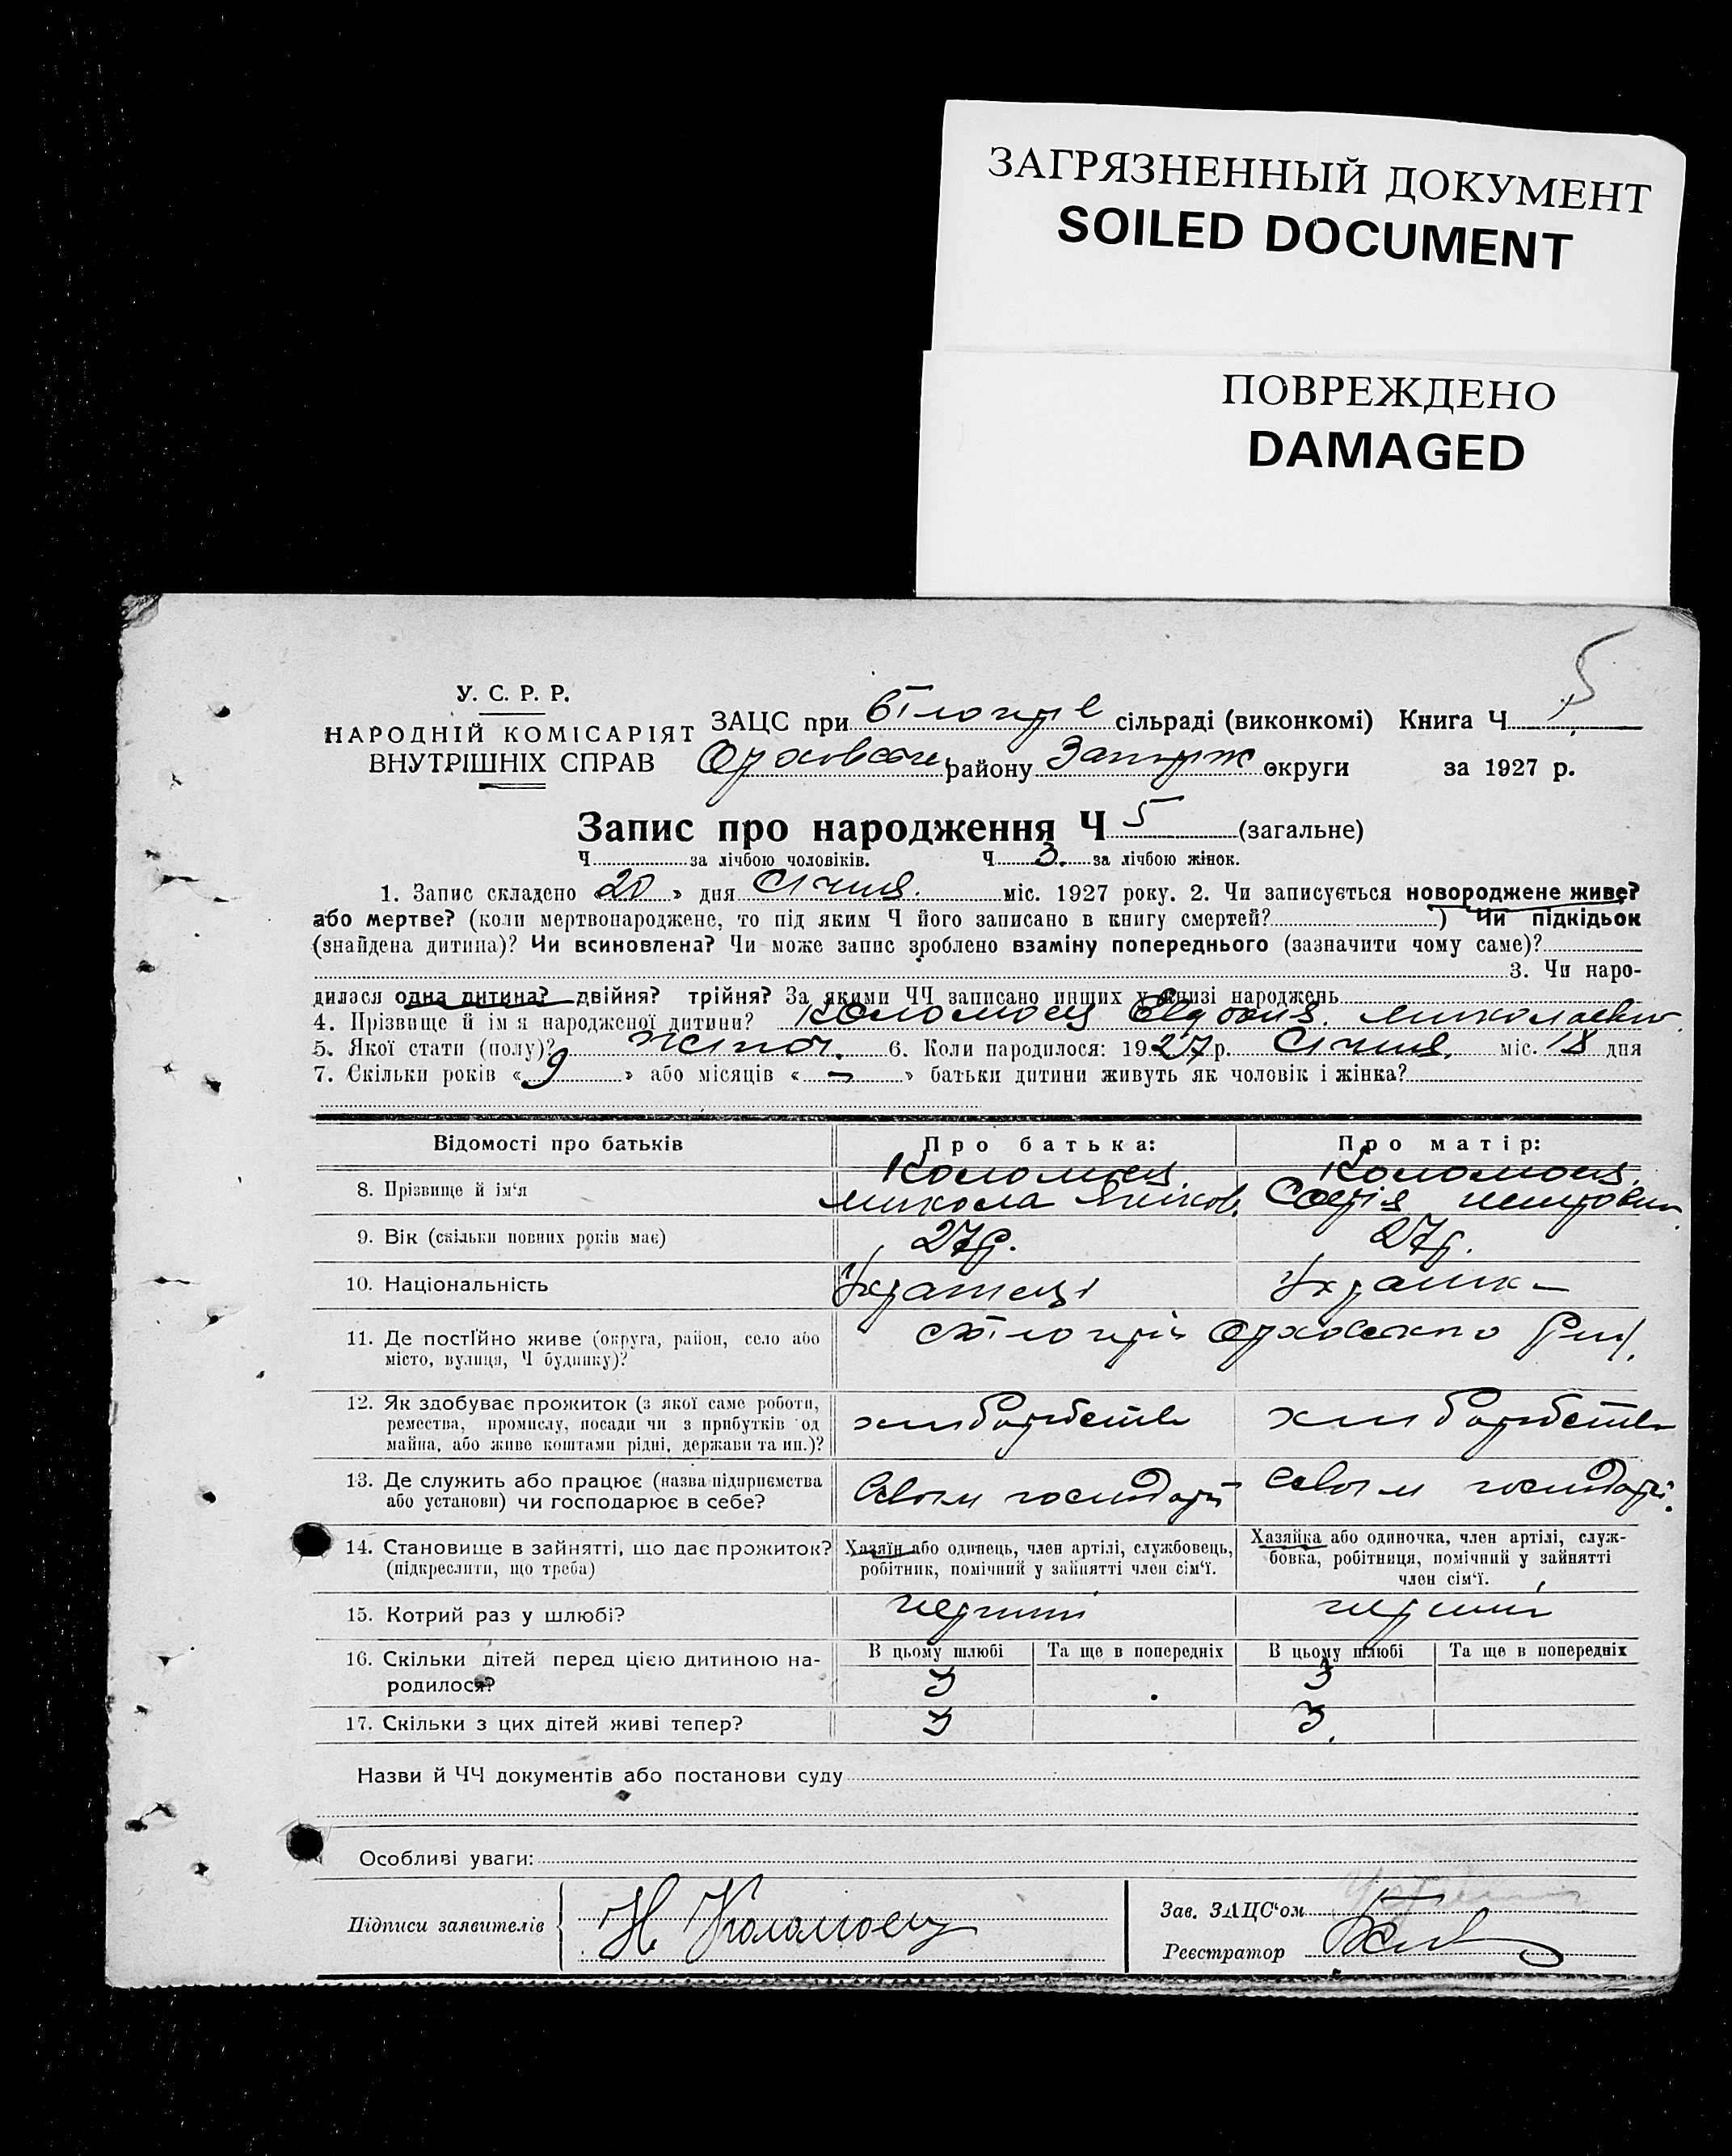 ЗАГРЯЗНЕННЫЙ ДОКУМЕНТ
SOILED DOCUMENT
ПОВРЕЖДЕНО
DAMAGED
5
У. С. Р. Р.
НАРОДНІЙ КОМІСАРІЯТ
ВНУТРІШНІХ СПРАВ
ЗАЦС при сільраді (виконкомі) Книга Ч
району Запоріж округи за 1927 р.
Запис про народження Ч 5 (загальне)
Ч за лічбою чоловіків. Ч 3. за лічбою жінок.
1. Запис складено 20 » дня Січня. міс. 1927 року. 2. Чи записується новороджене живе?
або мертве? (коли мертвонароджене, то під яким Ч його записано в книгу смертей? ) Чи підкідьок
(знайдена дитина)? Чи всиновлена? Чи може запис зроблено взаміну попереднього (зазначити чому саме)?
3. Чи наро-
дилася одна дитина? двійня? трійня? За якими ЧЧ записано инших у книзі народжень
4. Прізвище й ім'я народженої дитини? Коломоец Евдокия.
5. Якої стати (полу)? жіноч. 6. Коли народилося: 1927 р. Січня. міс. 18 дня
7. Скільки років « 9 » або місяців « — » батьки дитини живуть як чоловік і жінка?
Відомості про батьків
Про батька:
Про матір:
8. Прізвище й ім'я
Коломоец
Микола
Коломоец
Софія
9. Вік (скільки повних років має)
27р.
27р.
10. Національність
11. Де постійно живе (округа, район, село або
місто, вулиця, Ч будинку)?
12. Як здобуває прожиток (з якої саме роботи,
ремества, промислу, посади чи з прибутків од
майна, або живе коштами рідні, держави та ин.)?
13. Де служить або працює (назва підприємства
або установи) чи господарює в себе?
14. Становище в зайнятті, що дає прожиток?
(підкреслити, що треба)
Хазяїн або одинець, член артілі, службовець,
робітник, помічний у зайнятті член сім'ї.
Хазяйка або одиночка, член артілі, служ-
бовка, робітниця, помічний у зайнятті
член сім'ї.
15. Котрий раз у шлюбі?
16. Скільки дітей перед цією дитиною на-
родилося?
В цьому шлюбі
Та ще в попередніх
В цьому шлюбі
Та ще в попередніх
3
3
17. Скільки з цих дітей живі тепер?
3
3
Назви й ЧЧ документів або постанови суду
Особливі уваги:
Підписи заявителів
Н. Коломоец
Зав. ЗАЦС'ом
Реєстратор